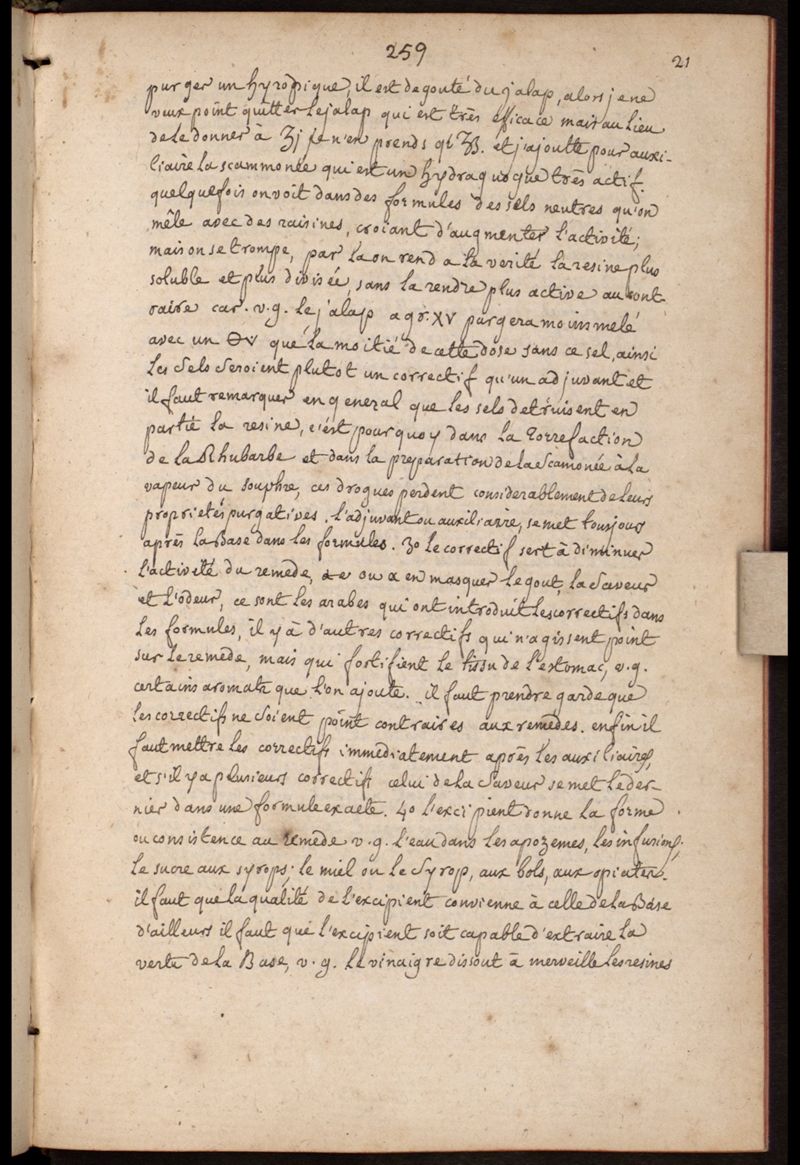 259
21
purger un hyropique, il est degouté du jalap, alors je ne
veux point quitter le jalap qui est très efficace mais au lieu
de le donner à ʒj je n'en prends q' ʒß. et j'ajoutte pour auxi-
liaire la scammonée qui est un hydragogue très actif.
quelquefois on voit dans des formules des sels neutres qu'on
mêle avec des raisines, croiant d'augmenter l'activité;
mais on se trompe, par là on rend a la verité la resine plus
soluble et plus divisée, sans la rendre plus active au cont-
raire car. v.g. le jalap a gr. XV purgera moins melé
avec un que la moitié de cette dose sans ce sel, ainsi
les sels seroient plutot un correctif qu'un adjuvant et
il faut remarquer en general que les sels detruisent en
partié la resine, c'ést pourquoy dans la torrefaction
de la Rhubarbe et dans la preparation de la Scamonée à la
vapeur du souphre, ces drogues perdent considerablement de leurs
proprietés purgatives. l'adjuvant ou auxiliaire, se met tousjours
après la Base dans les formules. 3o le correctif sert à diminuer
l'activité du remede, ou a en masquer le gout, la saveur
et l'odeur, ce sont les arabes qui ont introduit les correctifs dans
les formules, il y à d'autres correctifs qui n'agissent point
sur le remede, mais qui fortifient le tissu de l'estomac, v.g.
certains aromats que l'on ajoute. il faut prendre garde que
les correctifs ne soient point contraires aux remedes. enfin il
faut mettre les correctifs immediatement après les auxiliaires,
et s'il y a plusieurs correctifs celui de la saveur se met le der-
nier dans une formule exacte. 4o l'excipient donne la forme
ou consistence au remede v.g. l'eau dans les apozemes, les infusions;
le sucre aux syrops; le miel ou le syrop, aux bols, aux opiates.
il faut que la qualité de l'excipient convienne à celle de la Base
d'ailleurs il faut que l'excipient soit capable d'extraire la
vertu de la Base, v.g. le vinaigre dissout à merveille les resines